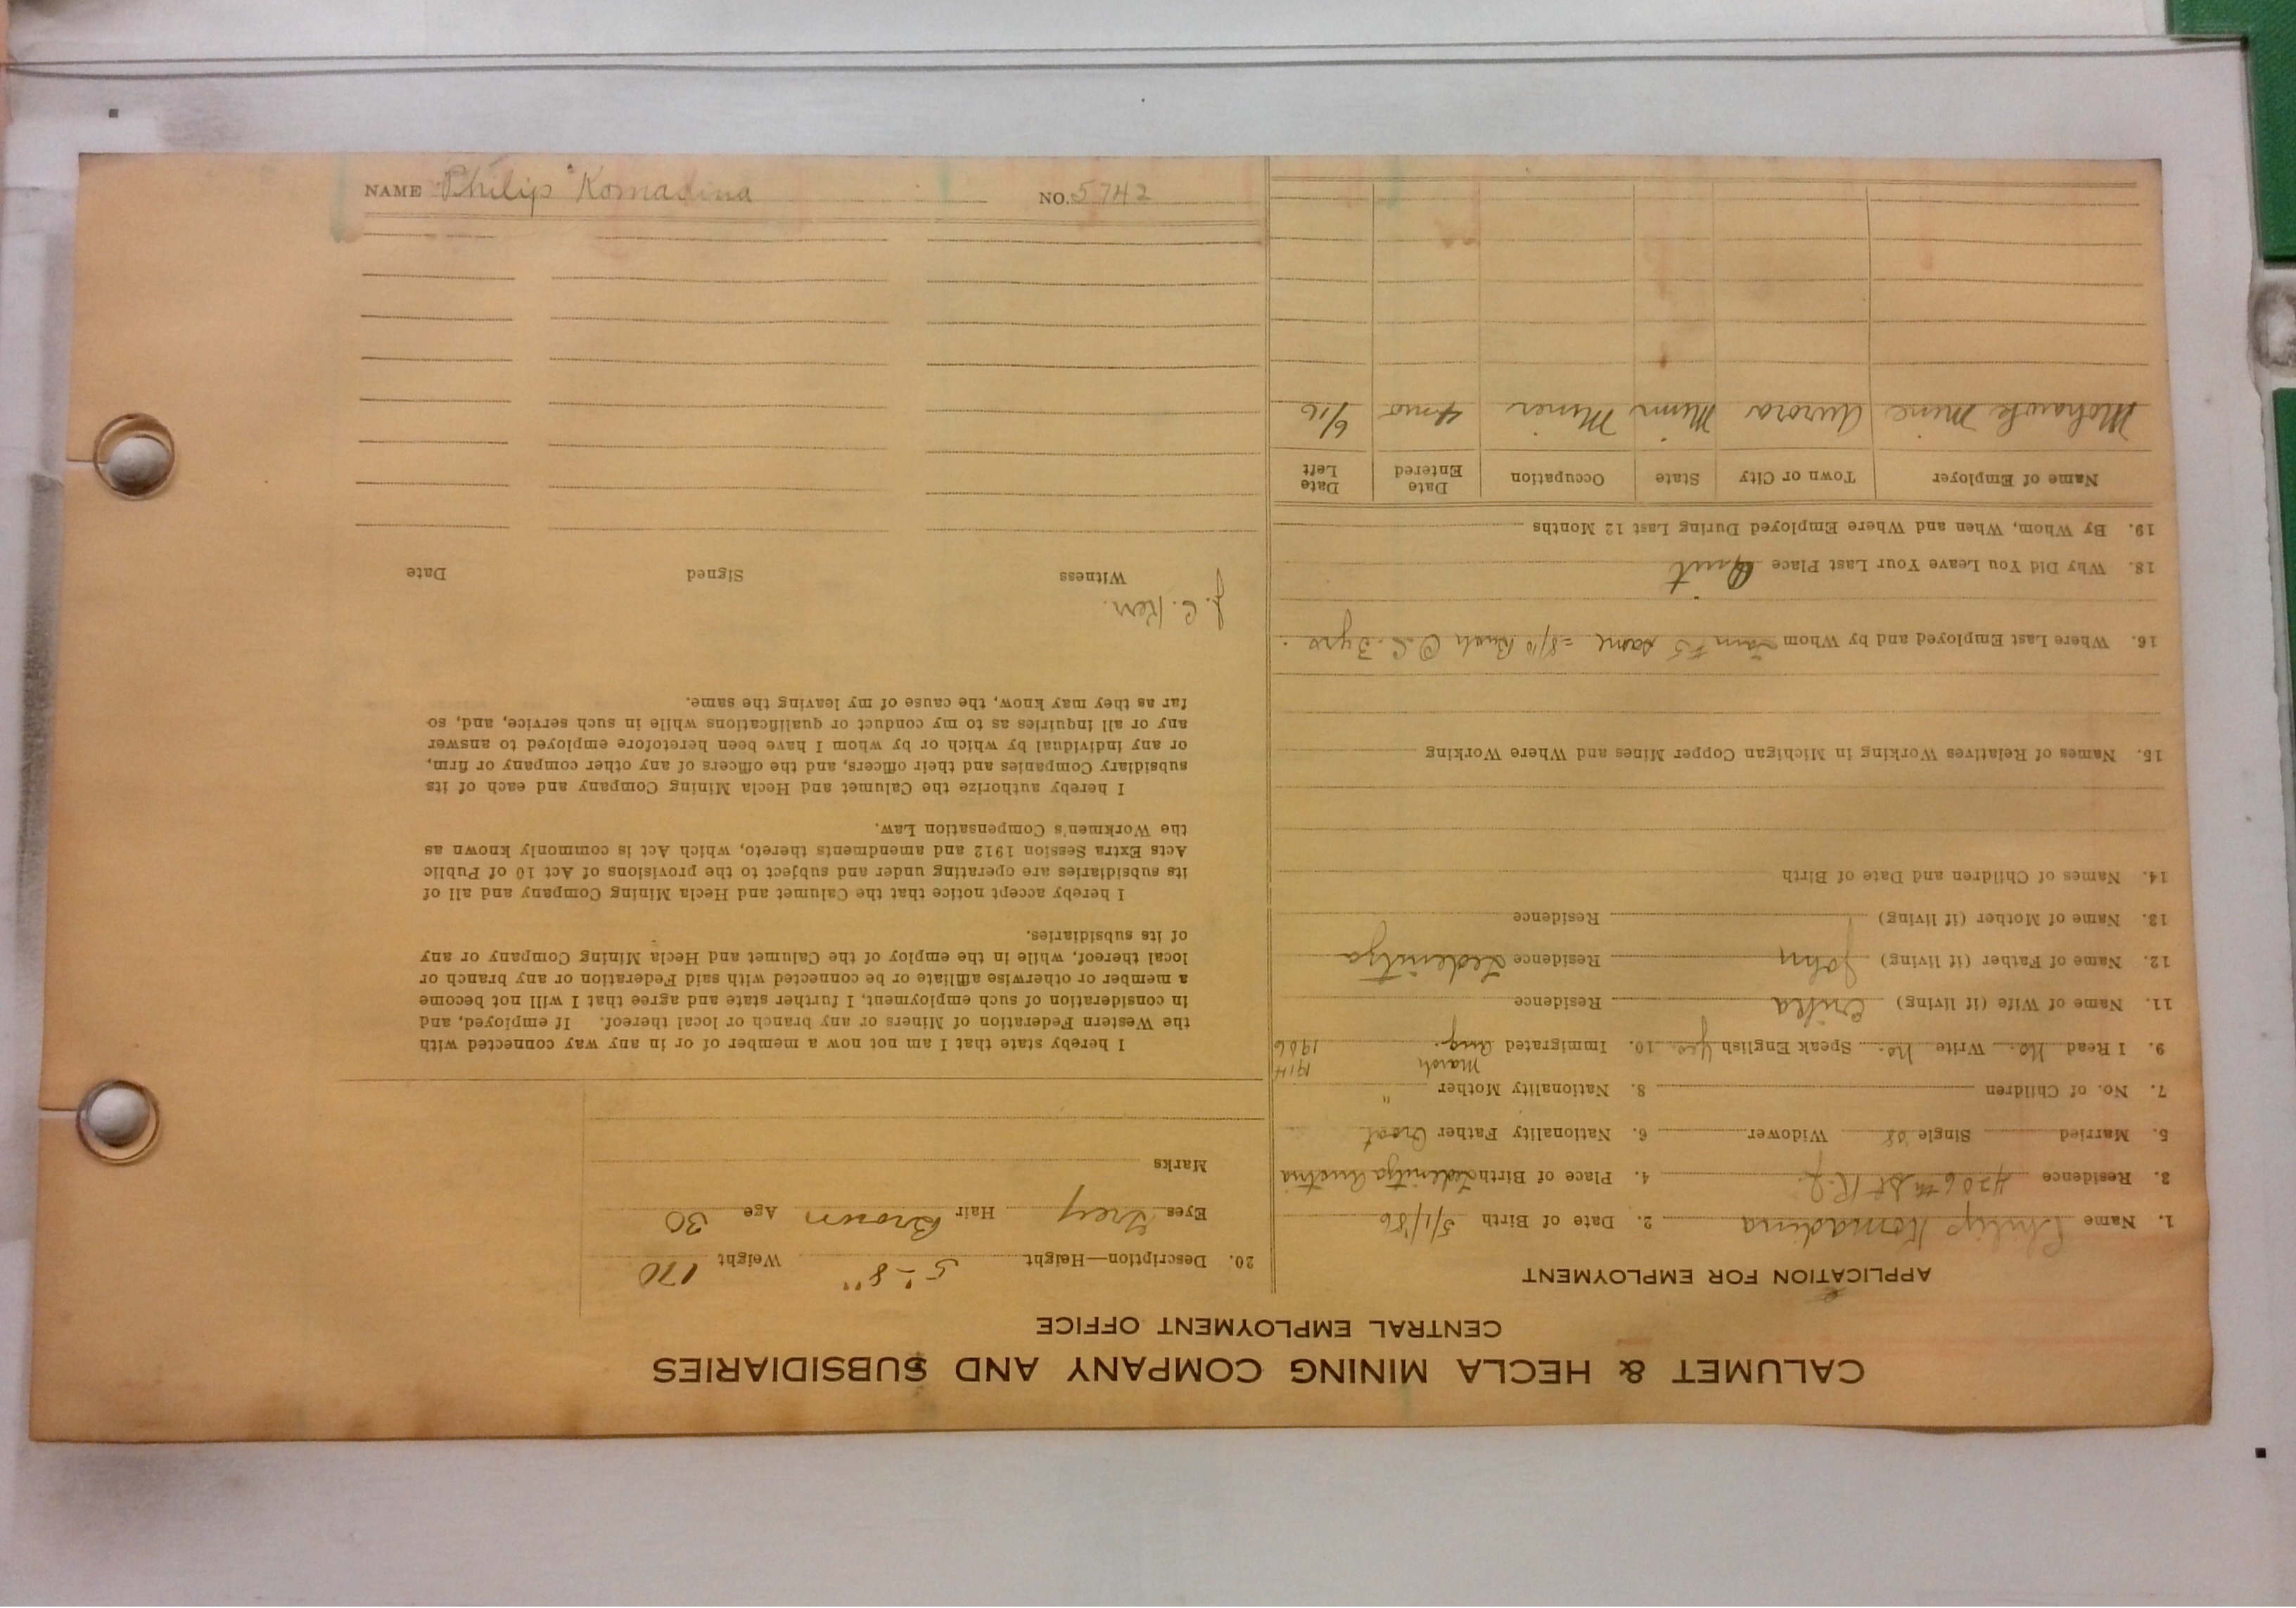 CALUMET & HECLA MINING COMPANY AND SUBSIDIARIES
CENTRAL EMPLOYMENT OFFICE
APPLICATION FOR EMPLOYMENT
1. Name Philip Komadina 2. Date of Birth 5/1/86
3. Residence 420 6th St R.J. 4. Place of Birth Ledenitza Austria
5. Married Single 08 Widower 6. Nationality Father Croat
7. No. of Children 8. Nationality Mother "
March 1914
9. I Read No. Write No. Speak English Yes 10. Immigrated Aug. 1906
11. Name of Wife (if living) Erika Residence
12. Name of Father (if living) John Residence Ledenitza
13. Name of Mother (if living) Residence
14. Names of Children and Date of Birth
15. Names of Relatives Working in Michigan Copper Mines and Where Working
16. Where Last Employed and by Whom Tam #5 same = 8/10 Bush O.C. 3 yrs
18. Why Did You Leave Your Last Place Quit
19. By Whom, When and Where Employed During Last 12 Months
Name of Employer Town or City State Occupation Date Entered Date Left
Mohawk Mine Aurora Minn Miner 4 mo 6/16
20. Description—Height 5'-8" Weight 170
Eyes Grey Hair Brown Age 30
Marks
I hereby state that I am not now a member of or in any way connected with
the Western Federation of Miners or any branch or local thereof. If employed, and
in consideration of such employment, I further state and agree that I will not become
a member or otherwise affiliate or be connected with said Federation or any branch or
local thereof, while in the employ of the Calumet and Hecla Mining Company or any
of its subsidiaries.
I hereby accept notice that the Calumet and Hecla Mining Company and all of
its subsidiaries are operating under and subject to the provisions of Act 10 of Public
Acts Extra Session 1912 and amendments thereto, which Act is commonly known as
the Workmen's Compensation Law.
I hereby authorize the Calumet and Hecla Mining Company and each of its
subsidiary Companies and their officers, and the officers of any other company or firm,
or any individual by which or by whom I have been heretofore employed to answer
any or all inquiries as to my conduct or qualifications while in such service, and, so
far as they may know, the cause of my leaving the same.
J. C. Kerr.
Witness Signed Date
NAME Philip Komadina NO. 5742